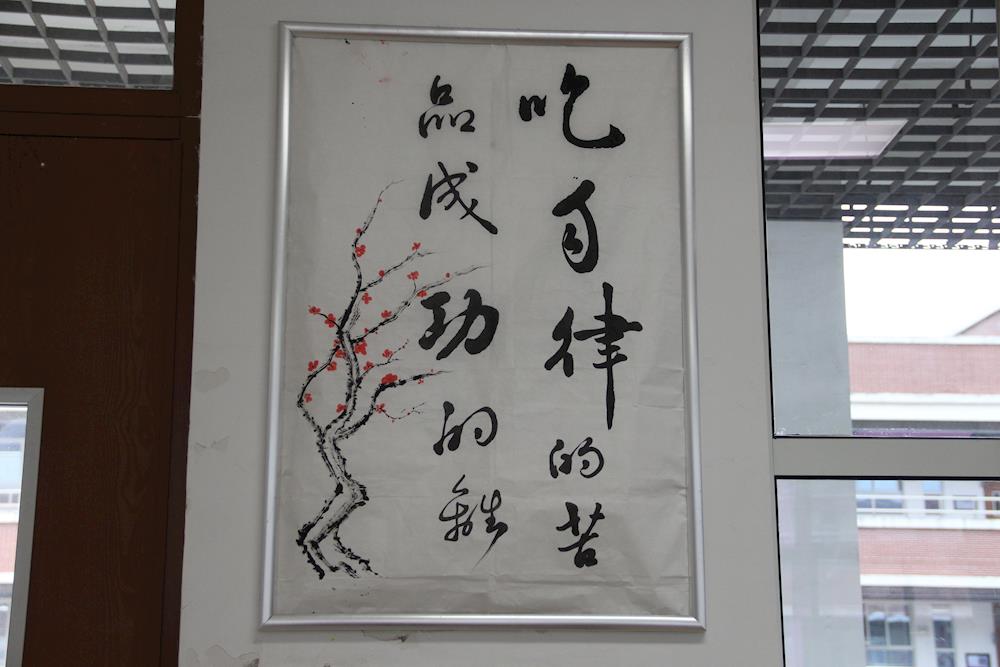 吃自律的苦
品成功的